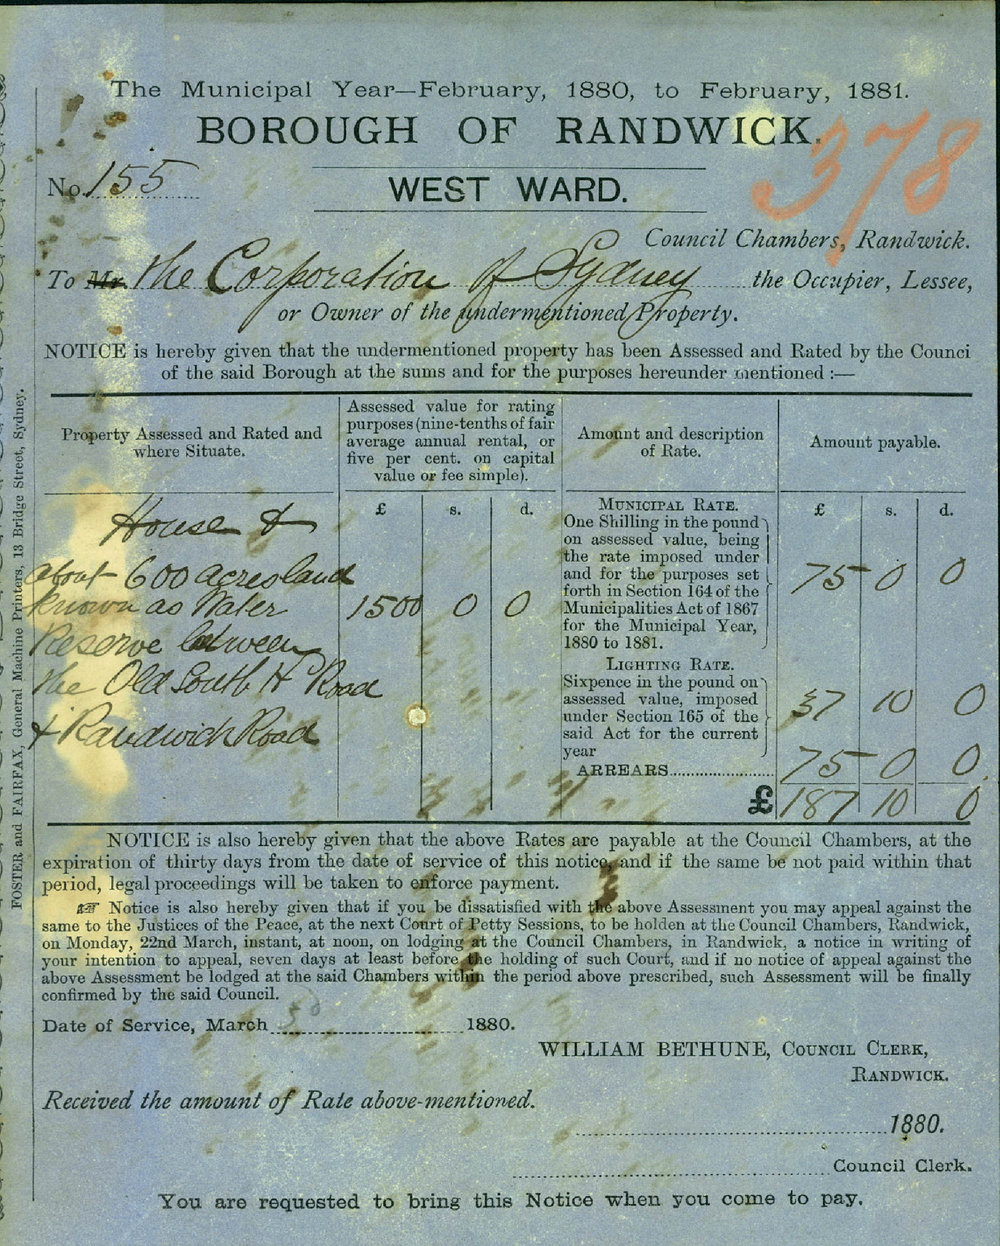 The Municipal Year—February, 1880, to February, 1881.
BOROUGH OF RANDWICK.
378
No. 155
WEST WARD.
Council Chambers, Randwick.
To Mr. the Corporation of Sydney the Occupier, Lessee,
or Owner of the undermentioned Property.
NOTICE is hereby given that the undermentioned property has been Assessed and Rated by the Counci
of the said Borough at the sums and for the purposes hereunder mentioned :—
Property Assessed and Rated and
where Situate.
Assessed value for rating
purposes (nine-tenths of fair
average annual rental, or
five per cent. on capital
value or fee simple).
Amount and description
of Rate.
Amount payable.
£ s. d.
£ s. d.
House &
about 600 acres land
known as Water
Reserve between
the Old South Hd Road
& Randwick Road
1500 0 0
MUNICIPAL RATE.
One Shilling in the pound
on assessed value, being
the rate imposed under
and for the purposes set
forth in Section 164 of the
Municipalities Act of 1867
for the Municipal Year,
1880 to 1881.
75 0 0
LIGHTING RATE.
Sixpence in the pound on
assessed value, imposed
under Section 165 of the
said Act for the current
year
37 10 0
ARREARS 75 0 0
£ 187 10 0
NOTICE is also hereby given that the above Rates are payable at the Council Chambers, at the
expiration of thirty days from the date of service of this notice, and if the same be not paid within that
period, legal proceedings will be taken to enforce payment.
☞ Notice is also hereby given that if you be dissatisfied with the above Assessment you may appeal against the
same to the Justices of the Peace, at the next Court of Petty Sessions, to be holden at the Council Chambers, Randwick,
on Monday, 22nd March, instant, at noon, on lodging at the Council Chambers, in Randwick, a notice in writing of
your intention to appeal, seven days at least before the holding of such Court, and if no notice of appeal against the
above Assessment be lodged at the said Chambers within the period above prescribed, such Assessment will be finally
confirmed by the said Council.
Date of Service, March 5d 1880.
WILLIAM BETHUNE, COUNCIL CLERK,
RANDWICK.
Received the amount of Rate above-mentioned.
1880.
Council Clerk.
You are requested to bring this Notice when you come to pay.
FOSTER and FAIRFAX, General Machine Printers, 13 Bridge Street, Sydney.